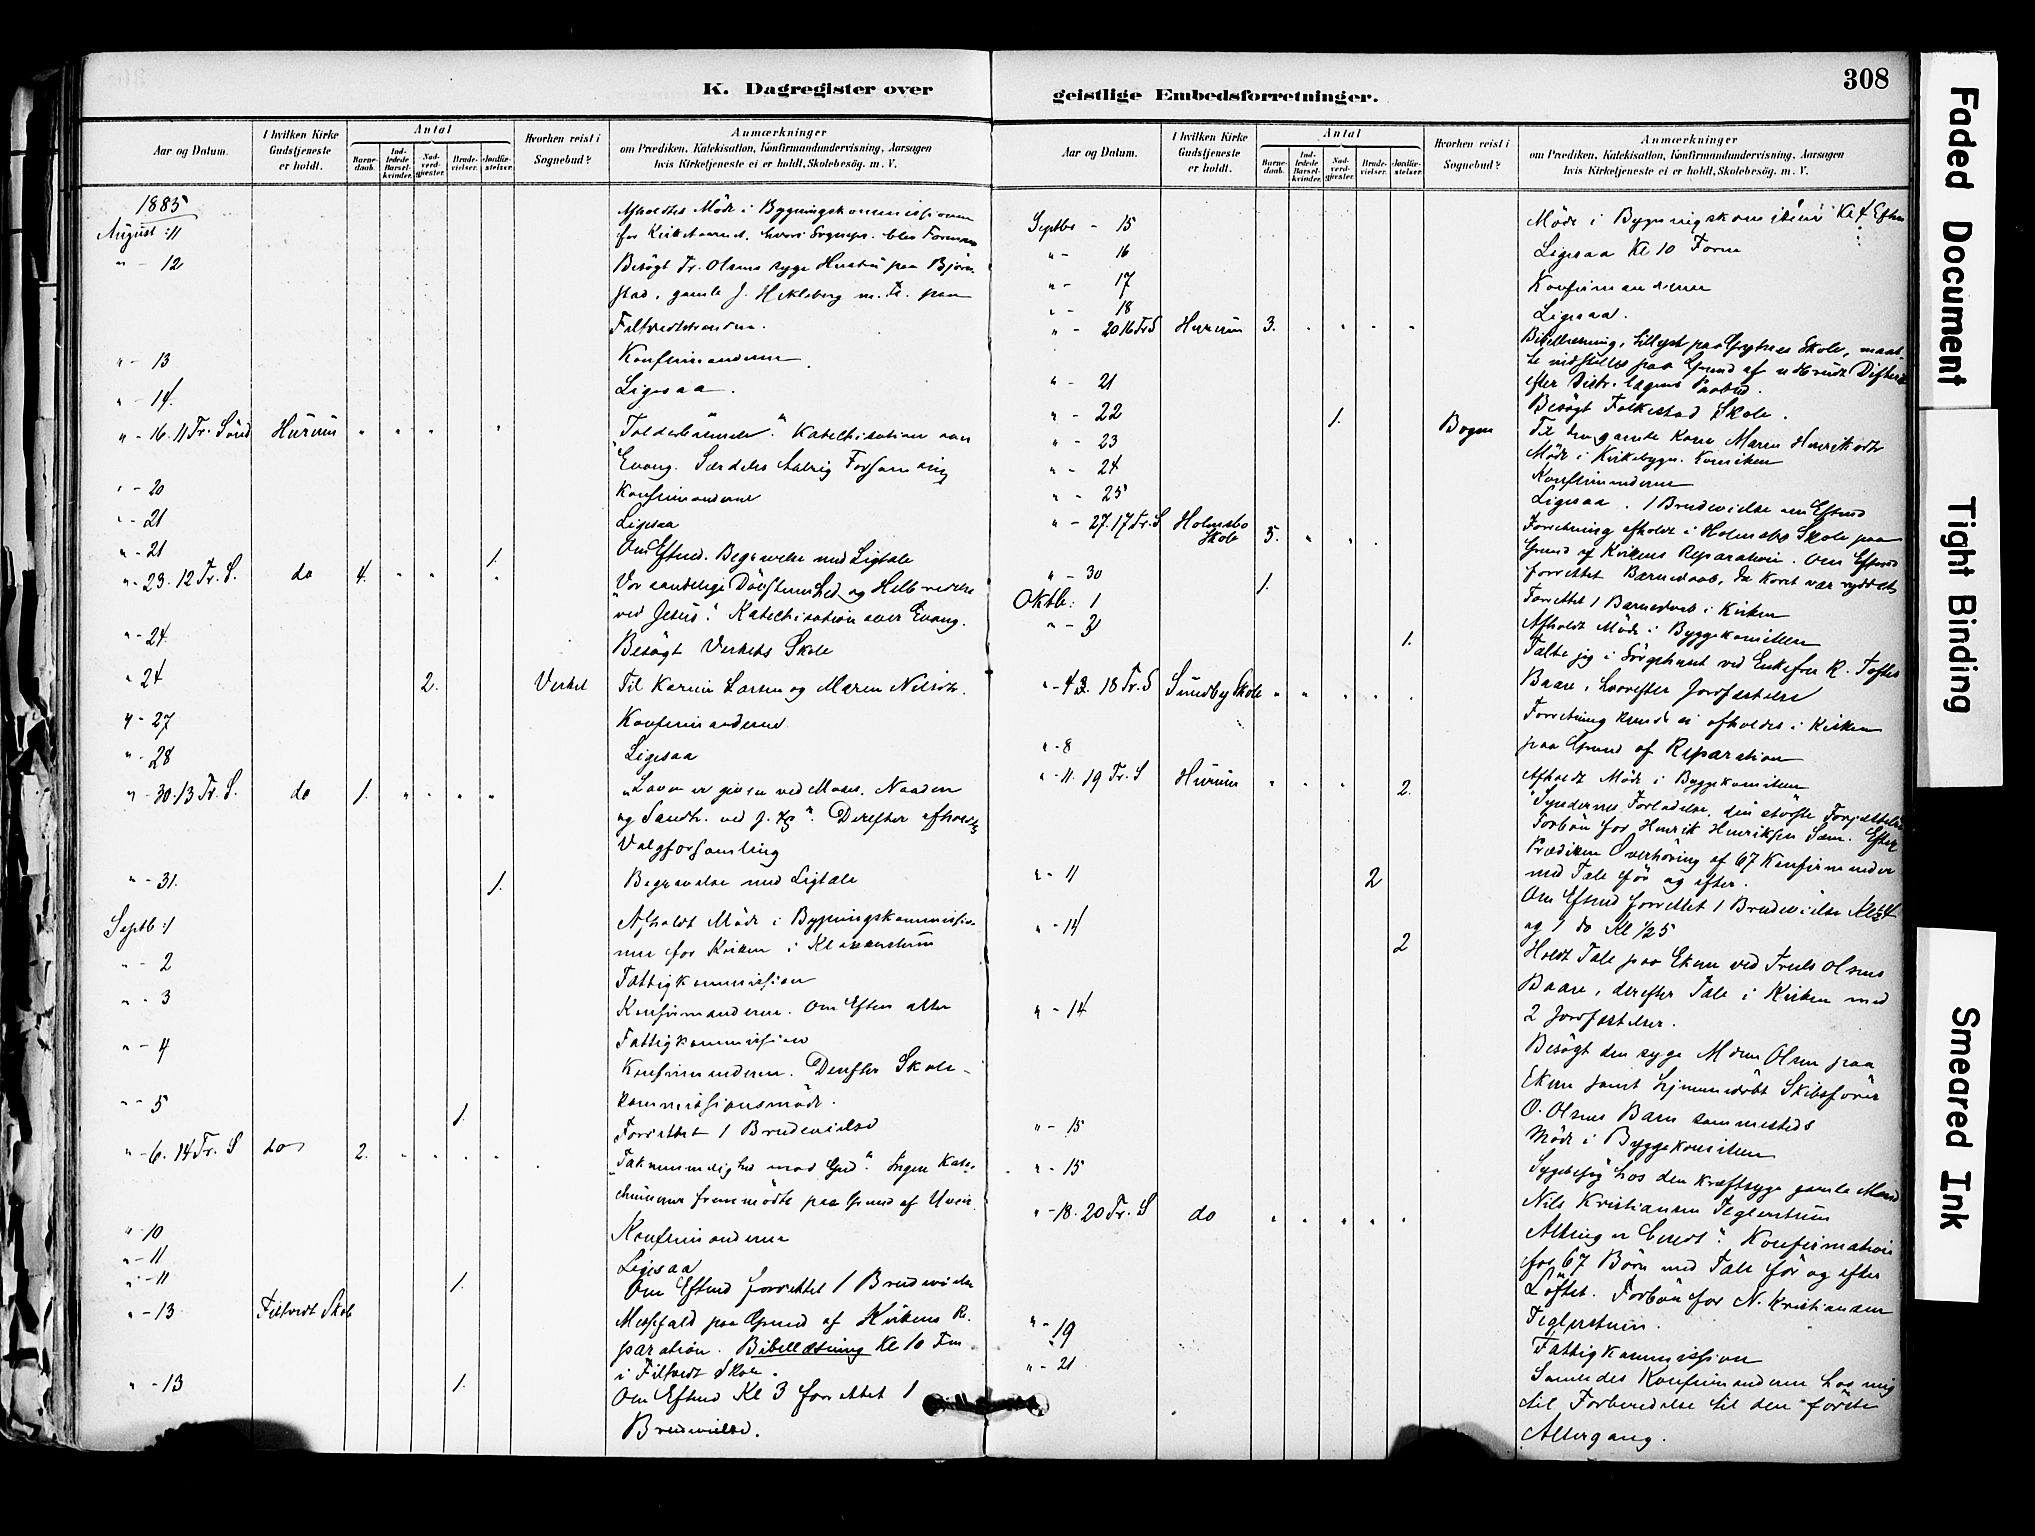 308
K. Dagregister over
geistlige Embedsforretninger.
Aar og Datum.
I hvilken Kirke Gudstjeneste er holdt.
Antal
Barne-daab.
Ind-ledede Barsel-kvinder.
Nad-verd-gjæster.
Brude-vielser.
Jordfæ-stelser.
Hvorhen reist i Sognebud?
Anmærkninger
om Prædiken, Katekisation, Konfirmandundervisning, Aarsagen
hvis Kirketjeneste ei er holdt, Skolebesøg. m. V.
1885
August :11 Afholdtes Möde i Bygningskommissionen
for Kirketaarnet, hvori Sognepr. blev Formand
" - 12 Besögt Fr. Olsens syge Hustru paa Björn
stad, gamle J. Hekleberg m. Fl. paa
Filtvedtstranden.
" - 13 Konfirmanderne
" - 14. Ligesaa.
" - 16. 11 Tr. Sönd Hurum " " " " Tolderbönnen". Katechisation over
Evang. Særdeles talrig Forsamling
" - 20 Konfirmanderne
" - 21 Ligesaa
" - 21 1. Om Eftmd. Begravelse med Ligtale
" - 23. 12 Tr. S. do 4. " " " Vor aandelige Dövstumhed og Helbredelse
ved Jesus". Katechisation over Evang.
" - 24. Besögt Verkets Skole
" 24 2. Verket Til Karen Larsen og Maren Nilsdtr.
" - 27 Konfirmanderne
" - 28 Ligesaa
" - 30. 13 Tr. S. do 1. " " " " "Loven er given ved Moses. Naaden
og Sandh. ved J. Kr". Derefter afholdtes
Valgforsamling
" - 31. 1. Begravelse med Ligtale
Septb :1 Afholdt Möde i Bygningskommissio-
nen for Kirken i Klokkerstuen
" - 2 Fattigkommission
" - 3 Konfirmanderne. Om Eftm atter
Fattigkommission
" - 4 Konfirmanderne. Derefter Skole-
kommissionsmöde.
" - 5 1. Forrettet 1 Brudevielse
" - 6. 14 Tr. S do 2. " " " " "Taknemmelighed mod Gud". Ingen Kate-
chumener fremmödte paa Grund af Uveir.
" - 10 Konfirmanderne
" - 11 Ligesaa
" - 11 1. Om Eftmd forrettet 1 Brudevielse
" - 13 Filtvedt Skole Messfald paa Grund af Kirkens Re-
paration. Bibellæsning Kl 10 Fm
i Filtvedt Skole.
" - 13 1. Om Eftmd Kl 3 forrettet 1
Brudevielse.
Aar og Datum.
I hvilken Kirke Gudstjeneste er holdt.
Antal
Barne-daab.
Ind-ledede Barsel-kvinder.
Nad-verd-gjæster.
Brude-vielser.
Jordfæ-stelser.
Hvorhen reist i Sognebud?
Anmærkninger
om Prædiken, Katekisation, Konfirmandundervisning, Aarsagen
hvis Kirketjeneste ei er holdt, Skolebesøg. m. V.
Septbr - 15 Möde i Bygningskomiteen Kl 4 Eftm
" - 16 Ligesaa Kl 10 Form
" - 17 Konfirmanderne
" - 18 Ligesaa.
" - 20 16 Tr S Hurum 3. " " " " Bibellæsning, tillyst paa Grytnes Skole, maat-
te indstilles paa Grund af udbrudt Difteri
efter Distr. lægens Paabud.
" - 21 Besögt Folkestad Skole.
" - 22 1. Bogen Til den gamle Kone Maren Henriksdtr
" - 23 Möde i Kirkebygn. Komiteen
" - 24 Konfirmanderne
" - 25 Ligesaa. 1 Brudevielse om Eftmd
" - 27. 17 Tr. S Holmsbo Skole 5. " " " Forretning afholdt i Holmsbo Skole paa
Grund af Kirkens Reparation. Om Eftmd
forrettet Barnedaab, da Koret var ryddet
" - 30 1. Forrettet 1 Barnedaab i Kirken
Oktb: 1 Afholdt Möde i Byggekomiteen
" - 2 1. Talte jeg i Sörgehuset ved Enkefru R. Toftes
Baare, hvorefter Jordfæstelse
" - 4 18 Tr. S Sundby Skole " " " " " Forretning kunde ei afholdes i Kirken
paa Grund af Reparation
" - 8 Afholdt Möde i Byggekomiteen
" - 11. 19 Tr. S Hurum " " " 2. "Syndernes Forladelse, den störste Forjættelse
Forbön for Henrik Henriksen Sæm. Efter
Prædiken Overhöring af 67 Konfirmander
med Tale för og efter.
" - 11 2 Om Eftmd forrettet 1 Brudevielse Kl 4
og 1 do Kl 1/2 5
" - 14 2 Holdt Tale paa Ekern ved Truls Olsens
Baare, derefter Tale i Kirken med
2 Jordfæstelser.
" - 14 Besögt den syge Mdm Olsen paa
Ekern samt hjemmedöbt Skibsförer
O. Olsens Barn sammesteds
" - 15 Möde i Byggekomiteen
" - 15 Sygebesög hos den kræftsyge gamle Mand
Nils Kristiansen Teglerstuen
" - 18. 20 Tr. S do " " " " " Alting er beredt". Konfirmation
for 67 Börn med Tale för og efter
Löftet. Forbön for N. Kristiansen
Teglerstuen.
" - 19 Fattigkommission
" - 21 Samledes Konfirmanderne hos mig
til Forberedelse til den förste
Altergang.
Faded Document
Tight Binding
Smeared Ink